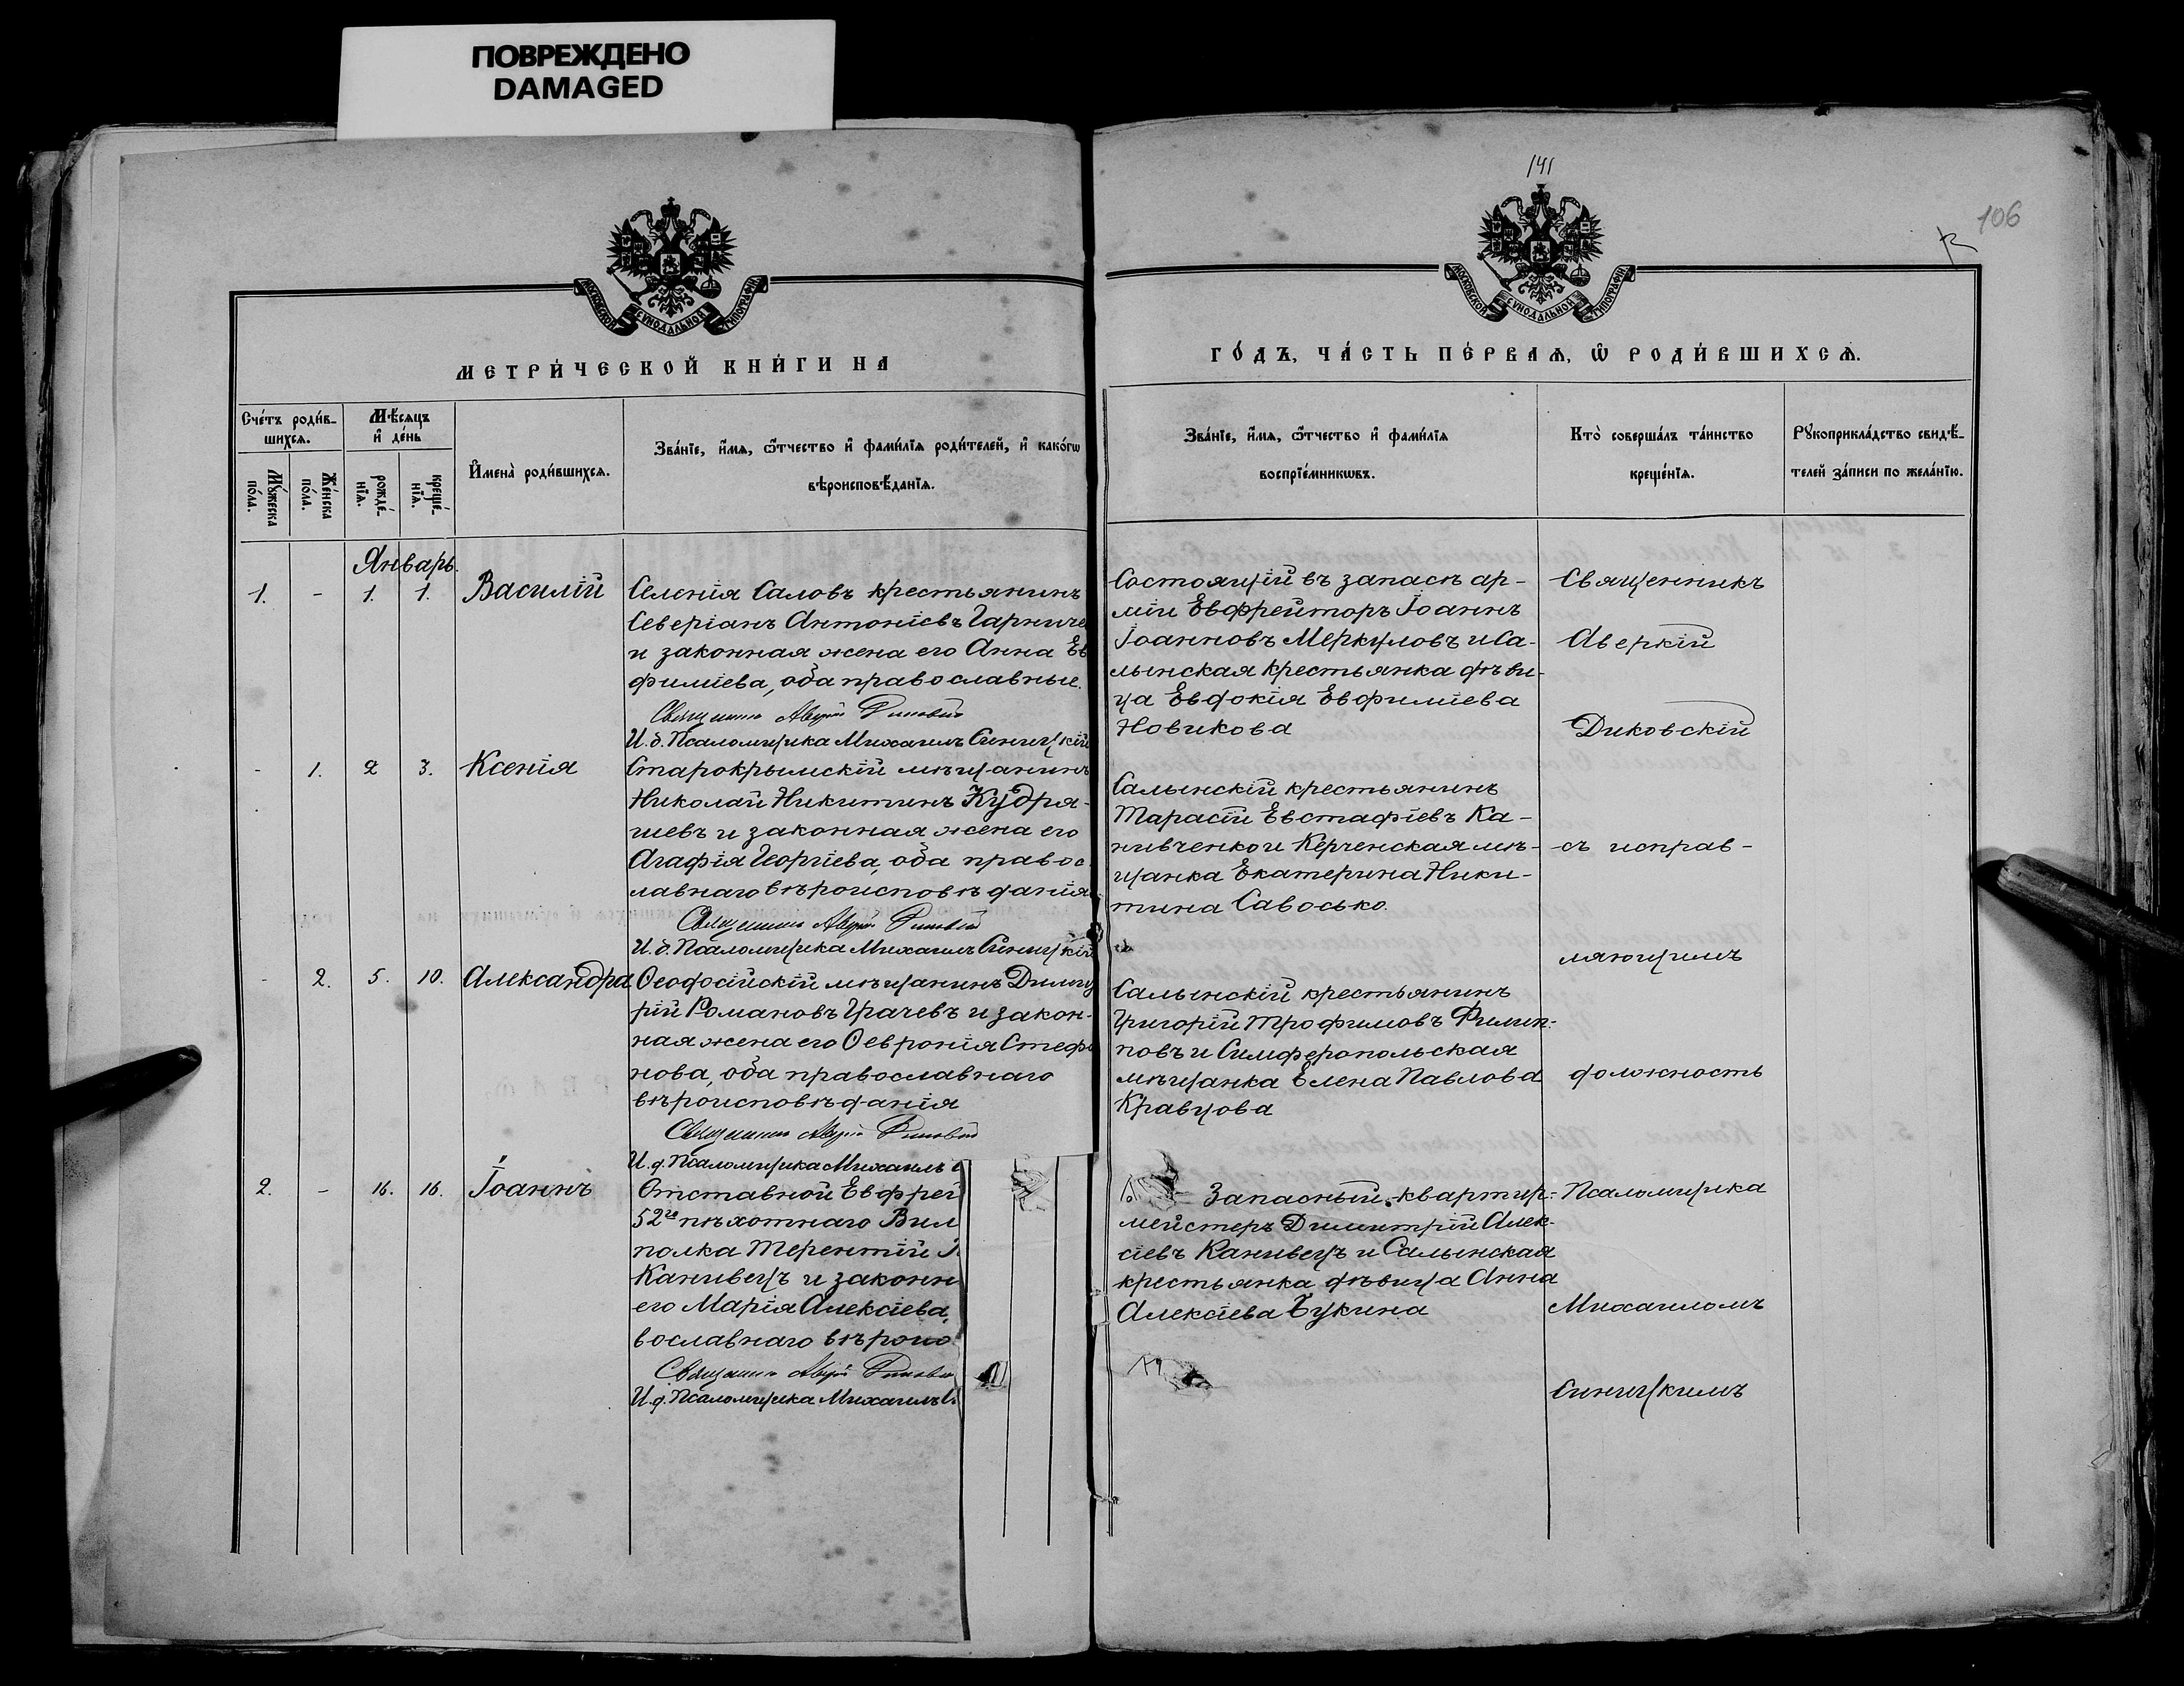 ПОВРЕЖДЕНО
DAMAGED
141
106
МОСКОВСКОЙ СѴНОДАЛЬНОЙ ТИПОГРАФІИ
МОСКОВСКОЙ СѴНОДАЛЬНОЙ ТИПОГРАФІИ
МЕТРИ́ЧЕСКОЙ КНИ́ГИ НА
ГО́ДЪ, ЧА́СТЬ ПЕ́РВАѦ, Ѡ РОДИ́ВШИХСѦ.
Сче́тъ роди́в-
шихсѧ.
Мѣ́сѧцъ
и҆ де́нь
Мꙋ́жеска
по́ла.
Же́нска
по́ла.
рожде́-
нїѧ.
креще́-
нїѧ.
И҆мена̀ роди́вшихсѧ.
Зва́нїе, и҆́мѧ, ѻ҆́тчество и҆ фами́лїѧ роди́телей, и҆ како́гѡ
вѣроисповѣ́данїѧ.
Зва́нїе, и҆́мѧ, ѻ҆́тчество и҆ фами́лїѧ
воспрїе́мникѡвъ.
Кто̀ соверша́лъ та́инство
креще́нїѧ.
Рꙋкоприкла́дство свидѣ́-
телей за́писи по жела́нїю.
Январь.
1. - 1. 1. Василій
Селенія Саловъ крестьянинъ
Северіанъ Антоніевъ Гарниче
и законная жена его Анна Ев
фиміева, оба православные.
Священникъ Аверкій Диковскій
И.д. Псаломщика Михаилъ Синицкій
Состоящій въ запасѣ ар-
міи Евфрейторъ Іоаннъ
Іоанновъ Меркуловъ и Са-
лынская крестьянка дѣви-
ца Евдокія Евфиміева
Новикова
Священникъ
Аверкій
Диковскій
- 1. 2 3. Ксенія
Старокрымскій мѣщанинъ
Николай Никитинъ Кудря-
шевъ и законная жена его
Агафія Георгіева, оба правос
лавнаго вѣроисповѣданія
Священникъ Аверкій Диковскій
И.д. Псаломщика Михаилъ Синицкій
Салынскій крестьянинъ
Тарасій Евстафіевъ Ка-
нивченко и Керченская мѣ-
щанка Екатерина Ники-
тина Савосько.
съ исправ-
ляющимъ
- 2. 5. 10. Александра
Ѳеодосійскій мѣщанинъ Димит
рій Романовъ Грачевъ и закон-
ная жена его Ѳевронія Стефа
нова, оба православнаго
вѣроисповѣданія
Священникъ Аверкій Диковскій
И.д. Псаломщика Михаилъ
Салынскій крестьянинъ
Григорій Трофимовъ Филип-
повъ и Симферопольская
мѣщанка Елена Павлова
Кравцова
должность
2. - 16. 16. Іоаннъ
Отставной Евфрей
52го пѣхотнаго Вил
полка Терентій
Канивецъ и законн
его Марія Алексіева,
вославнаго вѣроис
Священникъ Аверкій Диковскій
И.д. Псаломщика Михаилъ
Запасный квартир-
мейстеръ Димитрій Алек-
сіевъ Канивецъ и Салынская
крестьянка дѣвица Анна
Алексіева Букина
Псаломщика
Михаиломъ
Синицкимъ